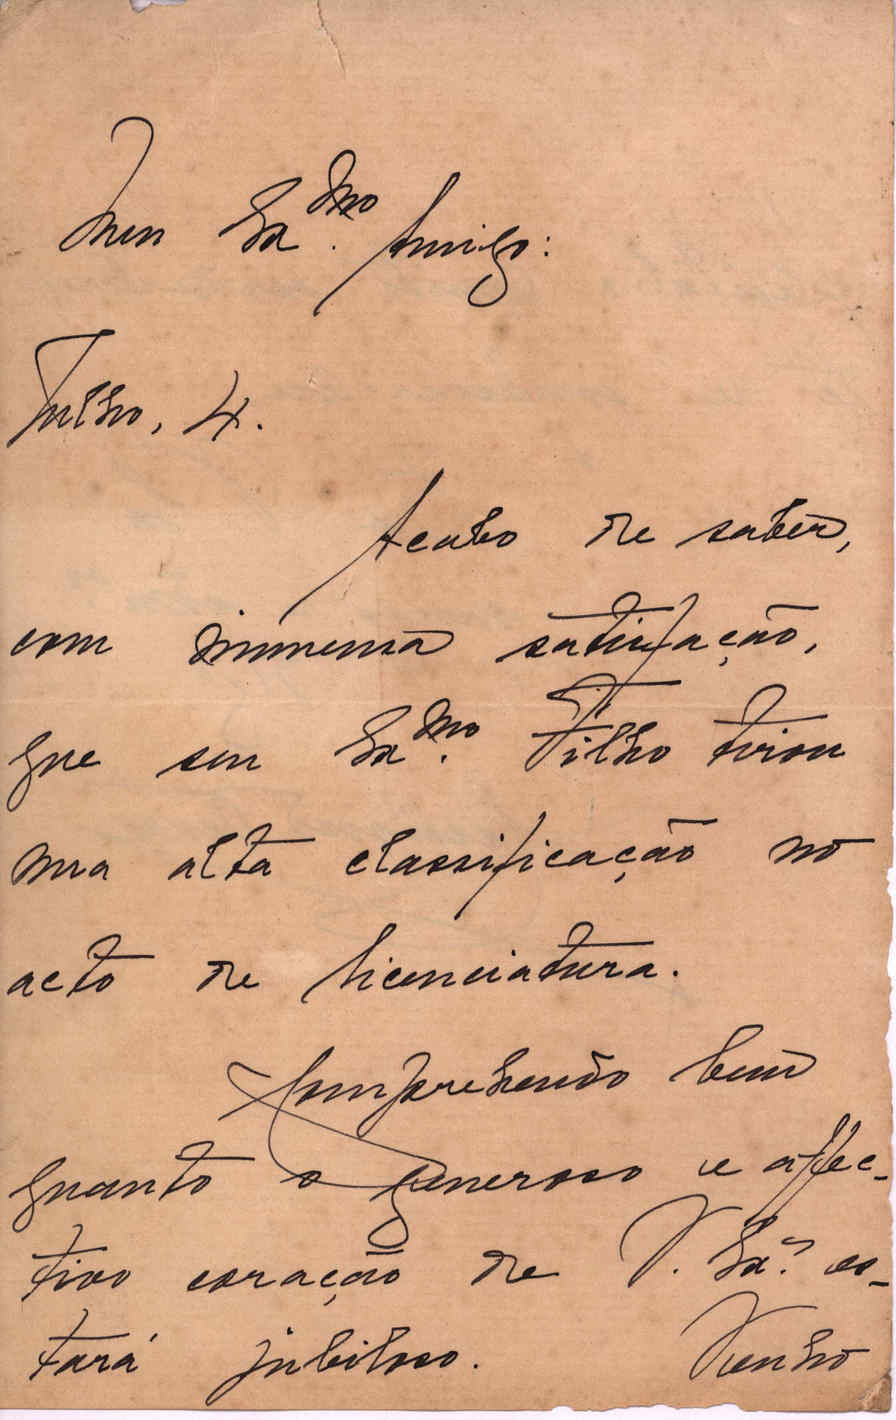 Meu Ex.mo Amigo:
Julho, 4.
Acabo de saber,
com immensa satisfação,
que seu Ex.mo Filho tirou
uma alta classificação no
acto de licenciatura.
Comprehendo bem
quanto o generoso e affec-
tivo coração de V. Ex.ª es-
tará jubiloso. Venho